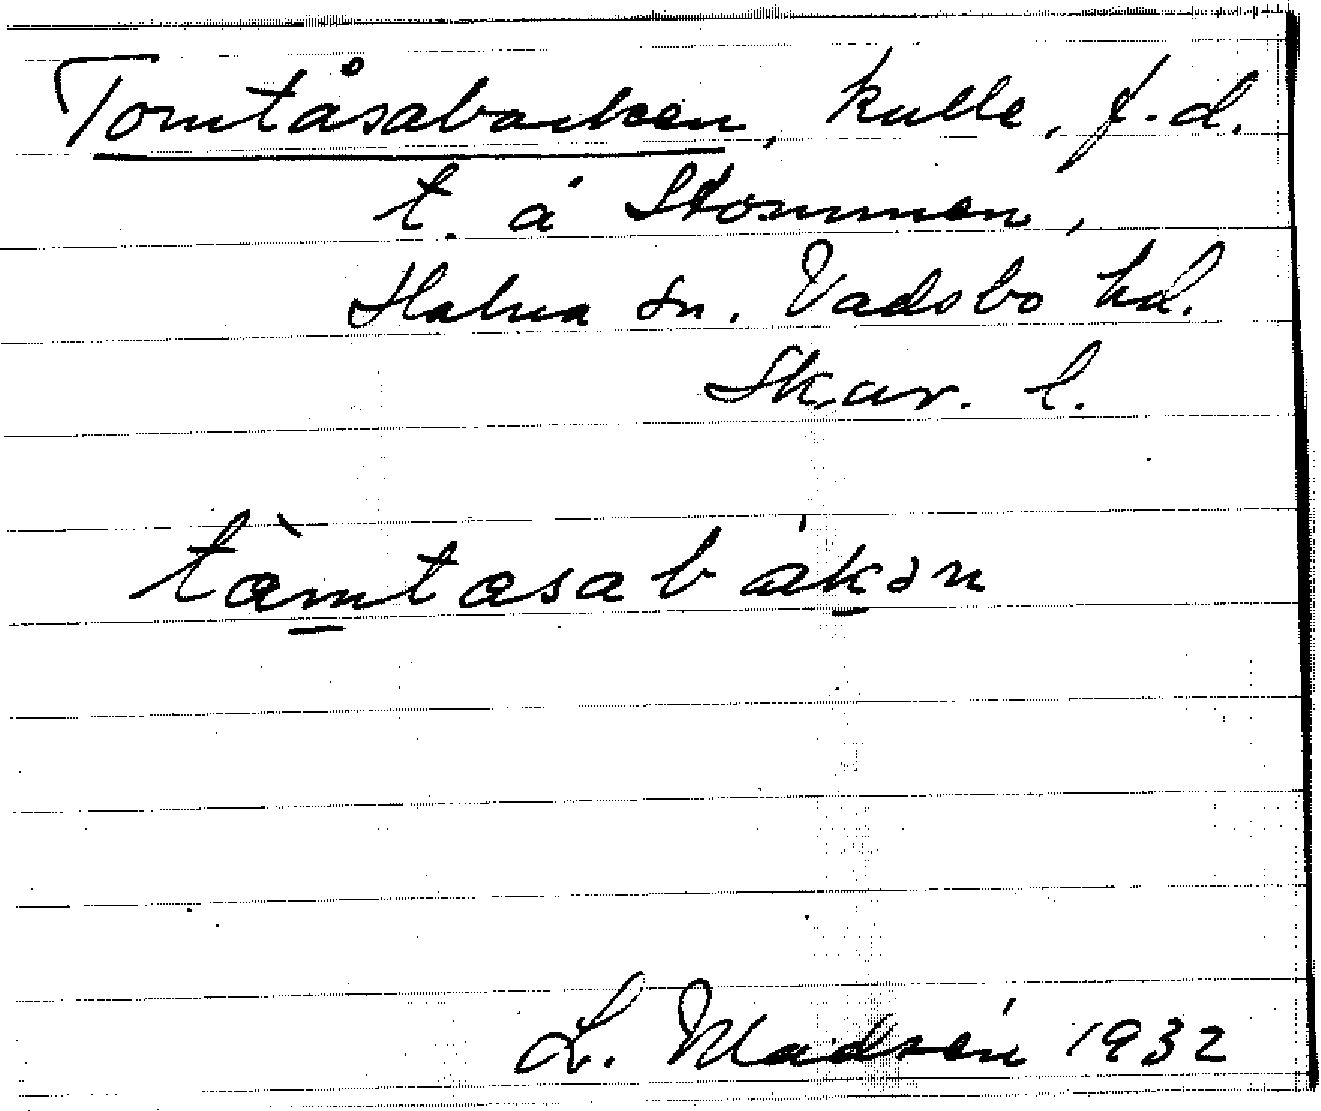 Tomtåsabacken, kulle, f.d.
t. å Stommen,
Halna sn. Vadsbo hd.
Skar. l.
tò̱mtasabákən
L. Madsén 1932